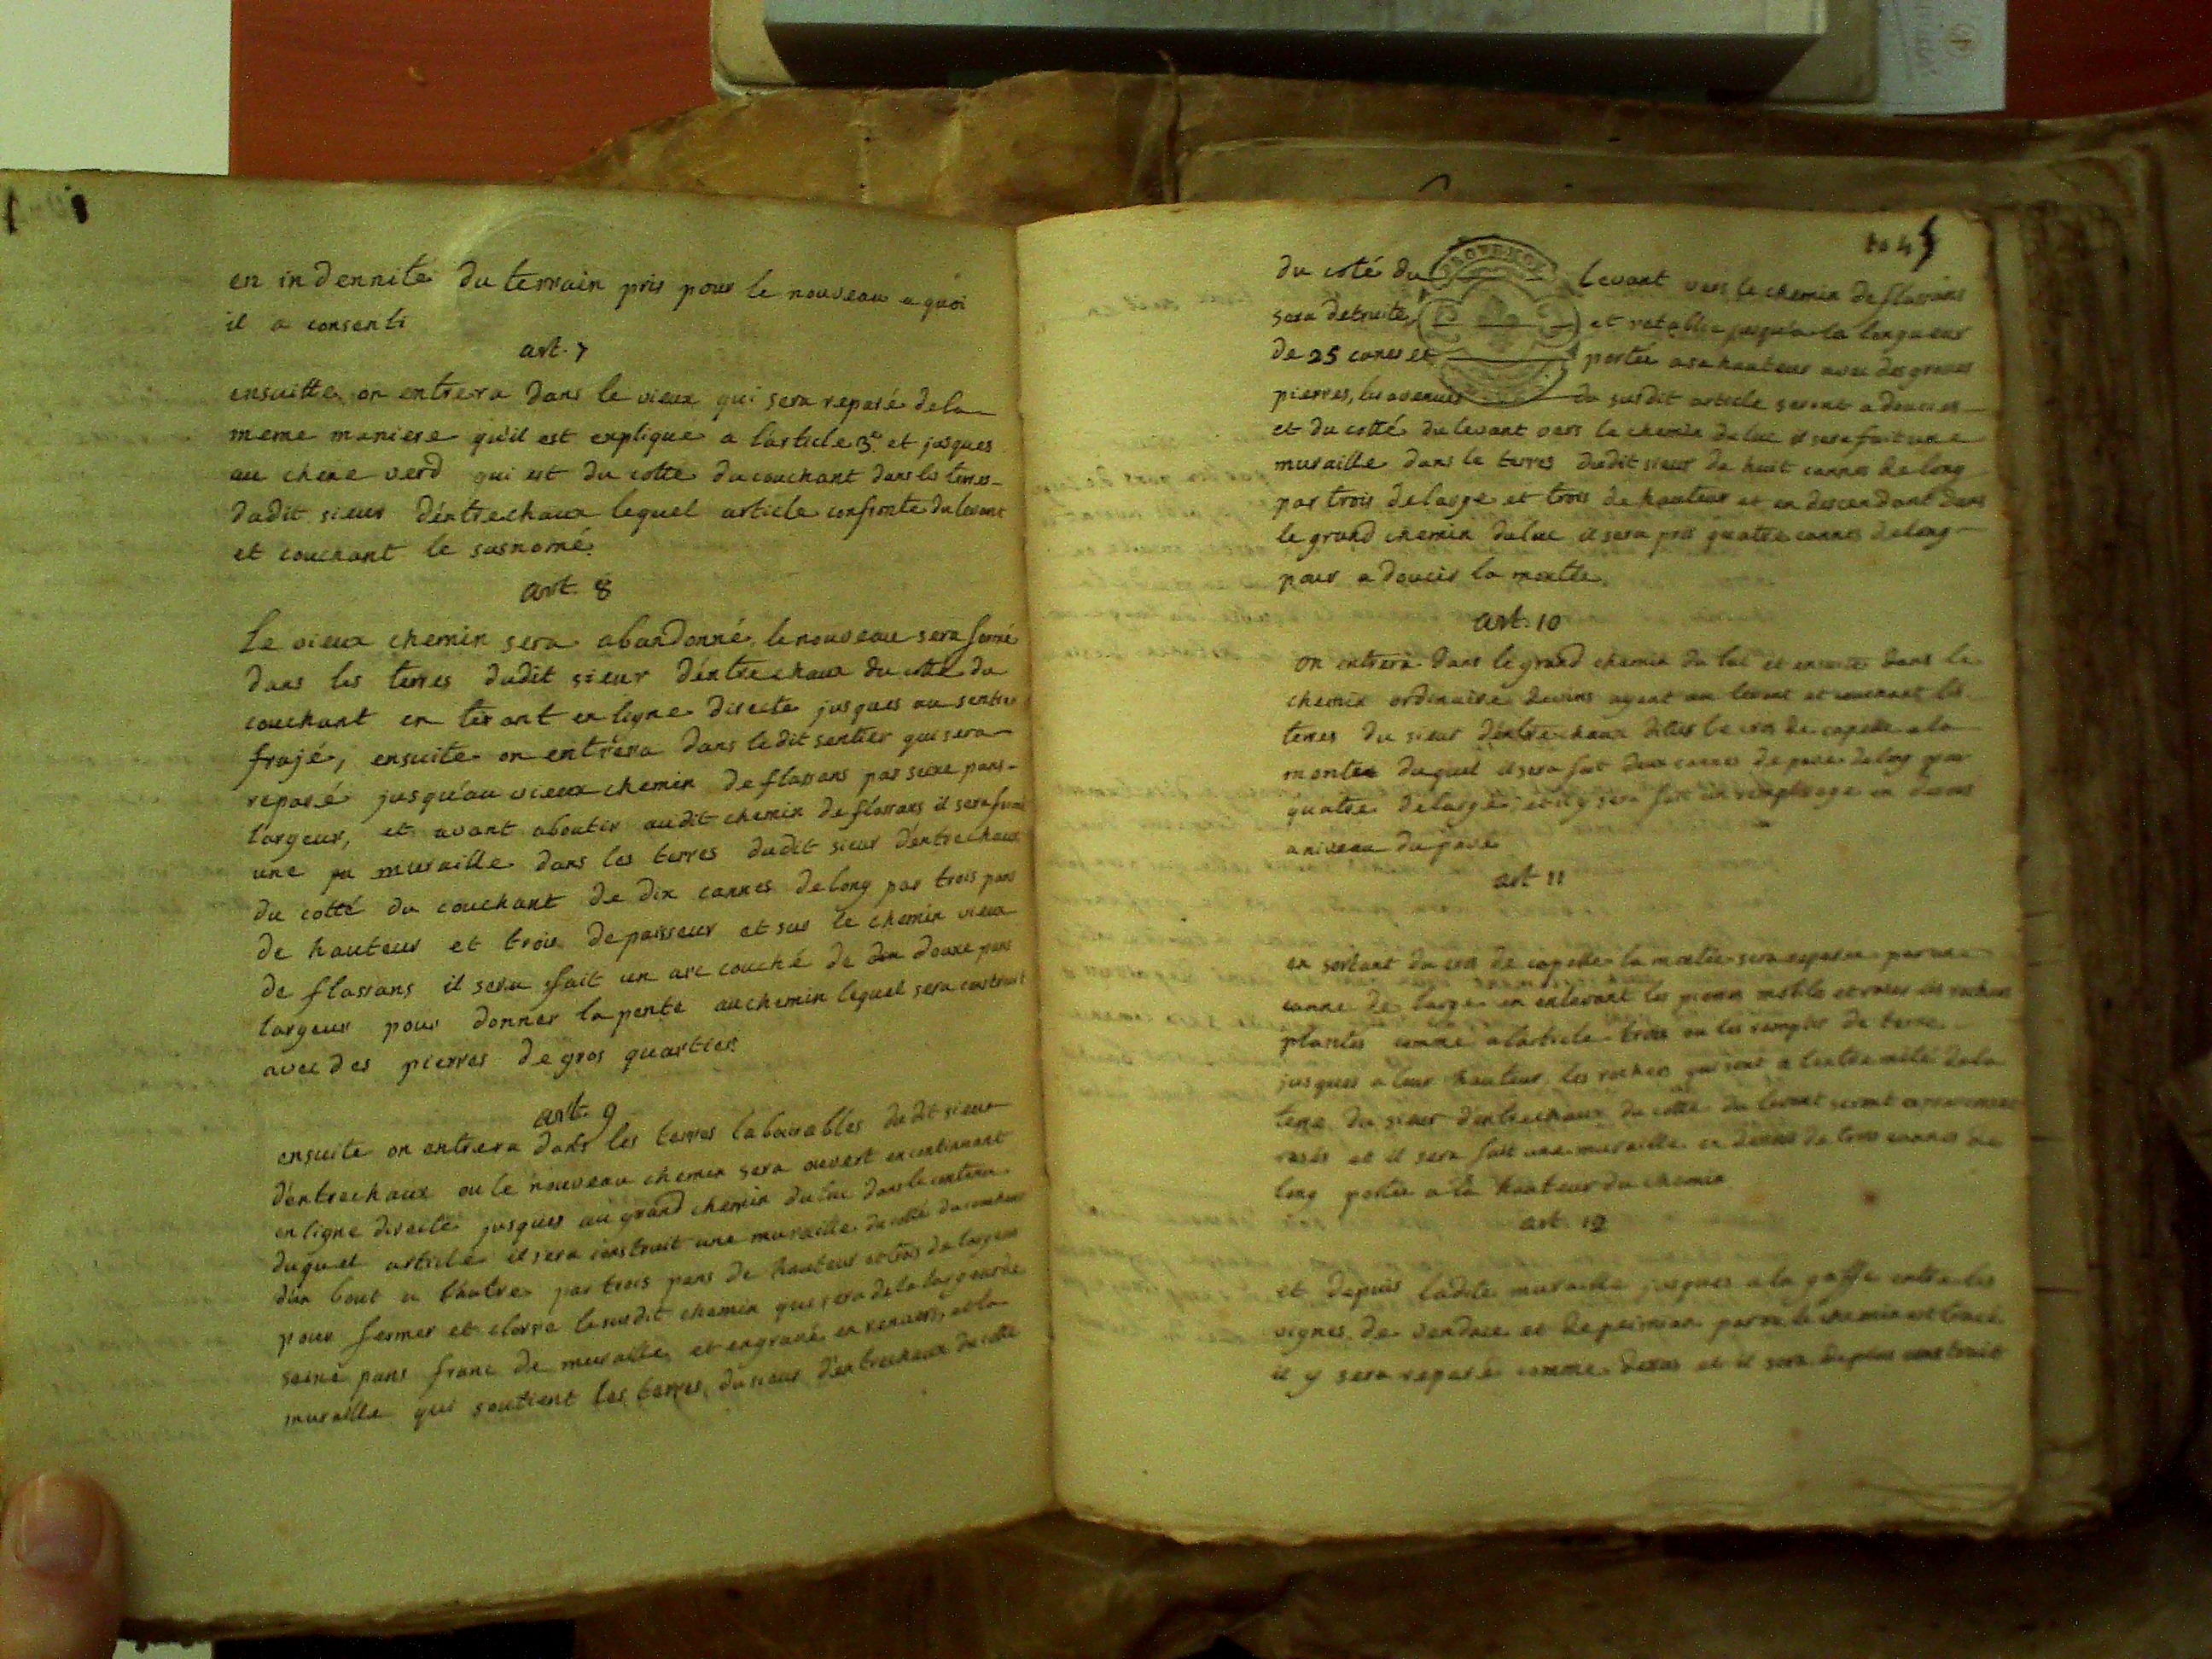 en indennité du terrain pris pour le nouveau a quoi
il a consenti
art. 7
ensuitte on entrera dans le vieux qui sera reparé dela
meme maniere qu'il est explique a l'article 3e et jusques
au chene verd qui est du cotte du couchant dans les terres
dudit sieur d'éntrechaux lequel article confronte du levant
et couchant le susnomé.
art. 8
Le vieux chemin sera abandonné, le nouveau sera formé
dans les terres dudit sieur d'éntrechaux du coté du
couchant en tirant en ligne directe jusques au sentier
frajé, ensuite on entrera dans ledit sentier qui sera
reparé jusqu'au vieux chemin de flassans par seize pans
largeur, et avant aboutir audit chemin de flassans il sera formé
une muraille dans les terres dudit sieur d'entrechaux
du cotté du couchant de dix cannes de long par trois pans
de hauteur et trois depaisseur et sur le chemin vieux
de flassans il sera fait un arc couché de douze pans
largeur pour donner la pente au chemin lequel sera construit
avec des pierres de gros quartier.
art. 9
ensuite on entrera dans les terres labourables dudit sieur
d'éntrechaux ou le nouveau chemin sera ouvert en continuant
en ligne directe jusques au grand chemin du luc dans le contenu
duquel article il sera construit une muraille du cotté du couchant
d'un bout a l'hutre par trois pans de hauteur et trois de largeur
pour fermer et clorre le susdit chemin qui sera de la largeur de
seize pans franc de muraille, et engravé en renvers, et la
muraille qui soutient les terres du sieur d'entrechaux du cotté
du coté du levant vers le chemin de flassans
sera detruite, et retablie jusqu'a la longueur
de 25 canes et portée a sa hauteur avec des grosses
pierres, les avenues du susdit article seront adoucies
et du cotté du levant vers le chemin du luc il sera fait une
muraille dans le terres dudit sieur de huit cannes de long
par trois de large et trois de hauteur et en descendant dans
le grand chemin du luc il sera pris quatre cannes de long
pour adoucir la montée.
art. 10
on entrera dans le grand chemin du luc et ensuite dans le
chemin ordinaire ayant au levant et couchant les
terres du sieur d'entrechaux dittes le cros de capelle a la
montée duquel il sera fait deux cannes de pavé de long par
quatre de large, et il y sera fait un remplissage en dessus
a niveau du pavé
art 11
en sortant du cros de capelle la montée sera reparée par une
canne de large en enlevant les pierres mobiles et les rochers
plantés comme a l'article trois ou les remplir de terre
jusques a leur hauteur, les rochers qui sont a l'extremité de la
terre du sieur d'entrechaux du cotté du levant seront
rasés et il sera fait une muraille en dessus de trois cannes de
long portée a la hauteur du chemin
art. 12
et depuis ladite muraille jusques a la gaffe entre les
vignes de et de par ou le chemin est tracé
il y sera reparé comme dessus et il sera deplus construit